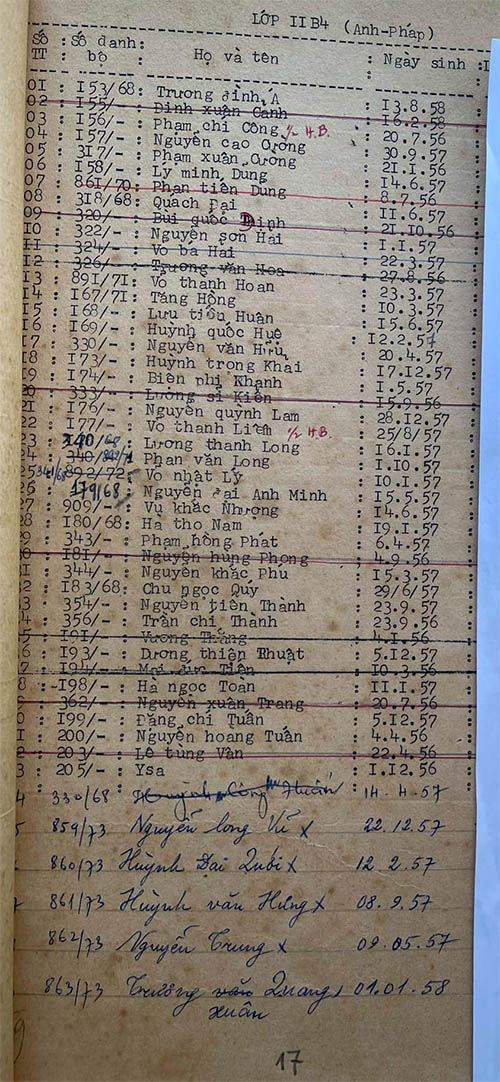 LỚP IIB4 (Anh-Pháp)
Số TT : Số danh bộ : Họ và tên : Ngày sinh :
01 : I53/68: Trương đình Á : I3.8.58
02 : I55/- : Đinh xuân Canh : I6.2.58
03 : I56/- : Phạm chí Công ½ H.B. : 20.7.56
04 : I57/- : Nguyễn cao Cương : 30.9.57
05 : 3I7/- : Phạm xuân Cương : 2I.I.56
06 : I58/- : Lý minh Dung : I4.6.57
07 : 86I/70: Phan tiến Dung : 8.7.56
08 : 3I8/68: Quách Đại : II.6.57
09 : 320/- : Bùi quốc Định : 2I.I0.56
I0 : 322/- : Nguyễn sơn Hải : I.I.57
II : 324/- : Võ bá Hải : 22.3.57
I2 : 326/- : Trương văn Hoa : 27.8.56
I3 : 89I/7I: Võ thanh Hoan : 23.3.57
I4 : I67/7I: Táng Hồng : I0.3.57
I5 : I68/- : Lưu tiểu Huân : I5.6.57
I6 : I69/- : Huỳnh quốc Huê : I2.2.57
I7 : 330/- : Nguyễn văn Hữu : 20.4.57
I8 : I73/- : Huỳnh trọng Khai : I7.I2.57
I9 : I74/- : Biên phi Khanh : I.5.57
20 : 333/- : Lương sĩ Kiên : I5.9.56
2I : I76/- : Nguyễn quỳnh Lam : 28.I2.57
22 : I77/- : Võ thanh Liêm ½ H.B. : 25/8/57
23 : 340/68 : Lương thanh Long : I6.I.57
4 : 340/ : Phan văn Long : I.I0.57
25 341/68 892/72: Võ nhật Lý : I0.I.57
26 : 179/68: Nguyễn đại Anh Minh : I5.5.57
27 : 909/- : Vụ khắc Nhương : I4.6.57
28 : I80/68: Hà thọ Nam : I9.I.57
9 : 343/- : Phạm hồng Phát : 6.4.57
0 : I8I/- : Nguyễn hùng Phong : 4.9.56
I : 344/- : Nguyễn khắc Phu : I5.3.57
2 : I83/68: Chu ngọc Quy : 29/6/57
3 : 354/- : Nguyễn tiến Thành : 23.9.57
4 : 356/- : Trần chí Thanh : 23.9.56
5 : I9I/- : Vương Thắng : 4.I.56
6 : I93/- : Dương thiện Thuật : 5.I2.57
7 : I94/- : Mai đức Tiên : I0.3.56
8 : -I98/- : Hà ngọc Toan : II.I.57
362/- : Nguyễn xuân Trang : 20.7.56
0 : I99/- : Đặng chí Tuấn : 5.I2.57
I : 200/- : Nguyễn hoàng Tuấn : 4.4.56
2 : 203/- : Lê tùng Vân : 22.4.56
3 : 205/- : Ysa : I.I2.56
4 330/68 Huỳnh Công 14.4.57
5 859/73 Nguyễn long Vũ x 22.12.57
860/73 Huỳnh Đại x 12.2.57
861/73 Huỳnh văn Hưng x 08.9.57
862/73 Nguyễn Trung x 09.05.57
863/73 Trương văn Quang 01.01.58
xuân
17